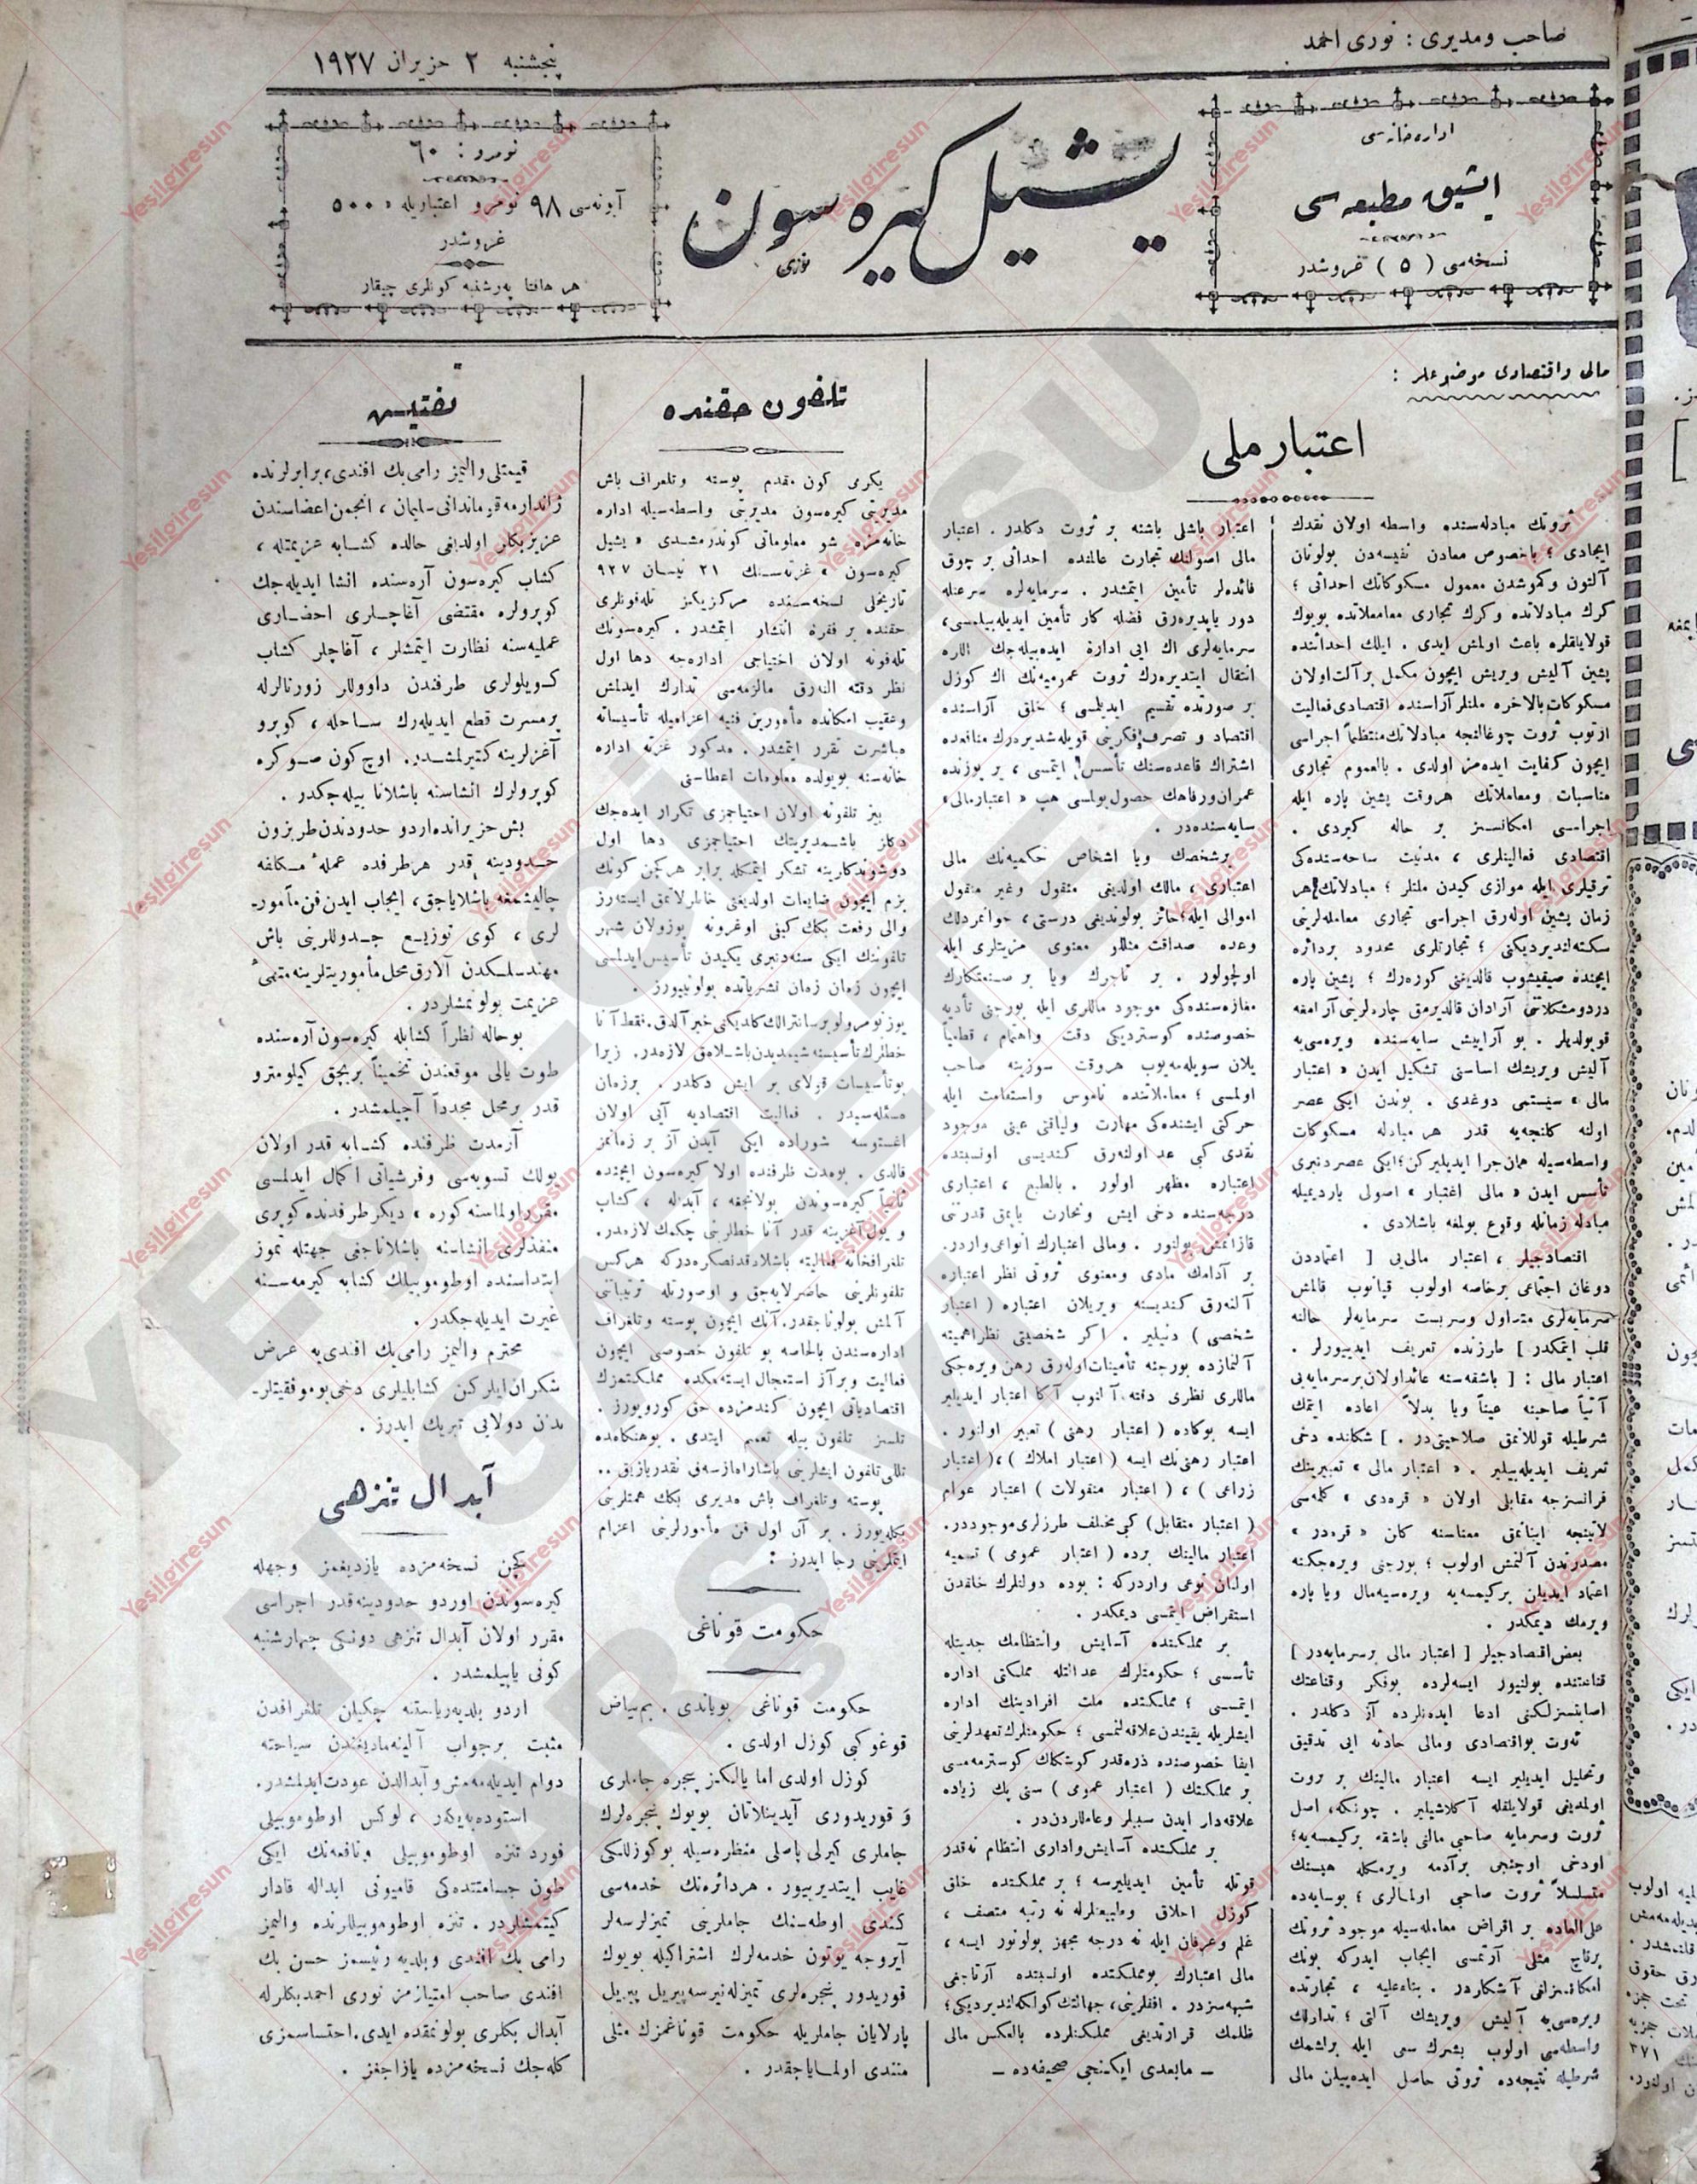 صاحب ومديرى : نورى احمد
پنجشنبه ٢ حزيران ١٩٢٧
اداره‌خانه‌سى
ايشيق مطبعه‌سى
نسخه‌سى ( ٥ ) غروشدر
يشيل كيره‌سون
نومرو : ٦٠
آبونه‌سى ٩٨ نومرو اعتباريله ٥٠٠
غروشدر
هر هافتا په‌رشنبه كونلرى چيقار
مالى واقتصادى موضوعلر :
اعتبار ملى
ثروتك مبادله‌سنده واسطه اولان نقدك
ايجادى ؛ باخصوص معادن نفيسه‌دن بولونان
آلتون وكموشدن معمول مسكوكاتك احداثى ؛
كرك مبادلاتده وكرك تجارى معاملاتده پويوك
قولايلقلره باعث اولمش ايدى . ايلك احداثنده
پشين آليش ويريش ايچون مكمل بر آلت اولان
مسكوكات بالاخره ملتلر آراسنده اقتصادى فعاليت
آرتوب ثروت چوغالنجه مبادلاتك منتظماً اجراسى
ايچون كفايت ايده‌مز اولدى . بالعموم تجارى
مناسبات ومعاملاتك هروقت پشين پاره ايله
اجراسى امكانسز بر حاله كيردى .
اقتصادى فعاليتلرى ، مدنيت ساحه‌سنده‌كى
ترقيلرى ايله موازى كيدن ملتلر ؛ مبادلاتك هر
زمان پشين اوله‌رق اجراسى تجارى معامله‌لرينى
سكته‌لنديرديكنى ؛ تجارتلرى محدود بردائره
ايچنده صيقيشوب قالديغنى كوره‌رك ؛ پشين پاره
دردومشكلاتنى آرادان قالديرمق چاره‌لرينى آرامغه
قويولديلر . بو آراييش سايه‌سنده ويره‌سى‌يه
آليش ويريشك اساسنى تشكيل ايدن « اعتبار
مالى » سيستمى دوغدى . بوندن ايكى عصر
اولنه كلنجه‌يه قدر هر مبادله مسكوكات
واسطه‌سيله همان اجرا ايديليركن؛ ايكى عصردنبرى
تأسس ايدن « مالى اعتبار » اصولى يارديميله
مبادله زمانله وقوع بولمغه باشلادى .
اقتصادجيلر ، اعتبار مالى‌يى [ اعتماددن
دوغان اجتماعى برخاصه اولوب قپانوب قالمش
سرمايه‌لرى متداول وسربست سرمايه‌لر حالنه
قلب ايتمكدر ] طرزنده تعريف ايدييورلر .
اعتبار مالى : [ باشقه‌سنه عائد اولان بر سرمايه‌يى
آتياً صاحبنه عيناً ويا بدلاً اعاده ايتمك
شرطيله قوللانمق صلاحيتى‌در . ] شكلنده دخى
تعريف ايديله‌بيلير . « اعتبار مالى » تعبيرينك
فرانسزجه مقابلى اولان « قره‌دى » كله‌سى
لاتينجه اينانمق معناسنه كلن « قره‌در »
مصدرندن آلنمش اولوب ؛ بورجنى ويره‌جكنه
اعتماد ايديلن بركيمسه‌يه ويره‌سيه‌مال ويا پاره
ويرمك ديمكدر .
بعض اقتصادجيلر [ اعتبار مالى برسرمايه‌در ]
قناعتنده بولنيور ايسه‌لرده بوفكر وقناعتك
اصابتسزلكنى ادعا ايده‌نلرده آز دكلدر .
ثروت بواقتصادى ومالى حادثه ايى تدقيق
وتحليل ايديلير ايسه اعتبار مالينك بر ثروت
اولمديغى قولايلقله آكلاشيلير . چونكه، اصل
ثروت وسرمايه صاحبى مالنى باشقه بركيمسه‌يه؛
اودخى اوچنجى برآدمه ويرمكله هپسنك
متسلسلاً ثروت صاحبى اولمالرى ؛ بوسايه‌ده
على‌العاده بر اقراض معامله‌سيله موجود ثروتك
برقاچ مثلى آرتمسى ايجاب ايدركه بونك
امكانسزلغى آشكاردر . بناءعليه ، تجارتده
ويره‌سى‌يه آليش ويريشك آلتى ؛ تدارلك
واسطه‌سى اولوب بشرك سعى ايله براشمك
شرطيله نتيجه‌ده ثروتى حاصل ايده‌بيلن مالى
اعتبار باشلى باشنه بر ثروت دكلدر . اعتبار
مالى اصولنك تجارت عالمنده احداثى بر چوق
فائده‌لر تأمين ايتمشدر . سرمايه‌لره سرعتله
دور ياپديره‌رق فضله كار تأمين ايديله‌بيلمسى،
سرمايه‌لرى اك ايى اداره ايده‌بيله‌جك اللره
انتقال ايتديره‌رك ثروت عموميه‌نك اك كوزل
بر صورتده تقسيم ايديلمسى ؛ خلق آراسنده
اقتصاد و تصرف فكرينى قويله‌شديره‌رك منافعده
اشتراك قاعده‌سنك تأسس ايتمسى ، ير يوزنده
عمران‌ورفاهك حصول‌بولمسى هپ « اعتبارمالى»
سايه‌سنده‌در .
برشخصك ويا اشخاص حكميه‌نك مالى
اعتبارى ، مالك اولديغى منقول وغير منقول
اموالى ايله؛ حائز بولونديغى درستى ، جوانمردلك
وعده صداقت مثللو معنوى مزيتلرى ايله
اولچولور . بر تاجرك ويا بر صنعتكارك
مغازه‌سنده‌كى موجود ماللرى ايله بورجنى تأديه
خصوصنده كوسترديكى دقت واهتمام ، قطعياً
يلان سويله‌مه‌يوب هروقت سوزينه صاحب
اولمسى ؛ معاملاتنده ناموس واستقامت ايله
حركتى ايشنده‌كى مهارت ولياقتى عينى موجود
نقدى كبى عد اولنه‌رق كنديسى اونسبتده
اعتباره مظهر اولور . بالطبع ، اعتبارى
درجه‌سنده دخى ايش وتجارت ياپمق قدرتنى
قازانمش بولنور . ومالى اعتبارك انواعى واردر.
بر آدامك مادى ومعنوى ثروتى نظر اعتباره
آلنه‌رق كنديسنه ويريلان اعتباره ( اعتبار
شخصى ) دنيلير . اكر شخصيتى نظراهميته
آلنمازده بورجنه تأمينات اوله‌رق رهن ويره‌جكى
ماللرى نظرى دقته آلنوب آكا اعتبار ايديلير
ايسه بوكاده ( اعتبار رهنى ) تعبير اولنور .
اعتبار رهنى‌نك ايسه ( اعتبار املاك )،( اعتبار
زراعى ) ، ( اعتبار منقولات ) اعتبار عوام
( اعتبار متقابل) كبى مختلف طرزلرى موجوددر.
اعتبار مالينك برده ( اعتبار عمومى ) تسميه
اولنان نوعى واردركه : بوده دولتلرك خلقدن
استقراض ايتمسى ديمكدر .
بر مملكتده آسايش وانتظامك جديتله
تأسسى ؛ حكومتلرك عدالتله مملكتى اداره
ايتمسى ؛ مملكتده ملت افرادينك اداره
ايشلريله يقيندن علاقه‌لنمسى ؛ حكومتلرك تعهدلرينى
ايفا خصوصنده ذره‌قدر كوشكلك كوسترمه‌مسى
بر مملكتك ( اعتبار عمومى ) سنى پك زياده
علاقه‌دار ايدن سببلر وعامللردن‌در .
بر مملكتده آسايش‌وادارى انتظام نه‌قدر
قوتله تأمين ايديليرسه ؛ بر مملكتده خلق
كوزل اخلاق وطبيعتلرله نه رتبه متصف ،
علم وعرفان ايله نه درجه مجهز بولونور ايسه ،
مالى اعتبارك بومملكتده اونسبتده آرتاجغى
شبهه‌سزدر . افقلرينى، جهالتك كولكه‌لنديرديكى؛
ظلمك قرارتديغى مملكتلرده بالعكس مالى
ــ مابعدى ايكنجى صحيفه‌ده ــ
تلفون حقنده
يكرمى كون مقدم پوسته وتلغراف باش
مديريتى كيره‌سون مديريتى واسطه‌سيله اداره
خانه‌مزه شو معلوماتى كوندرمشدى « يشيل
كيره‌سون » غزته‌سنك ٢١ نيسان ٩٢٧
تاريخلى نسخه‌سنده مركزيكز تله‌فونلرى
حقنده بر فقره انتشار ايتمشدر . كيره‌سونك
تله‌فونه اولان احتياجى اداره‌جه دها اول
نظر دقته النه‌رق مالزمه‌سى تدارك ايدلمش
وعقيب امكانده مأمورين فنيه اعزاميله تأسيساته
مباشرت تقرر ايتمشدر . مذكور غزته اداره
خانه‌سنه بويولده معلومات اعطاسى
بيز تلفونه اولان احتياجمزى تكرار ايده‌جك
دكلز باشمديريتك احتياجمزى دها اول
دوشوندكارينه تشكر ايتمكله برابر هركچن كونك
بزم ايچون ضايعات اولديغنى خاطرلاتمق ايسته‌رز
والى رفعت بكك كيفى اوغرونه بوزولان شهر
تلفوننك ايكى سنه‌دنبرى يكيدن تأسيس ايدلمسى
ايچون زمان زمان نشرياتده بولونييورز .
يوز نومرولو برسانترالك كلديكنى خبر آلدق. فقط آنا
خطلرك تأسيسنه شيمديدن باشلامق لازمدر. زيرا
بوتأسيسات قولاى بر ايش دكلدر . برزمان
مسئله‌سيدر . فعاليت اقتصاديه آيى اولان
اغستوسه شوراده ايكى آيدن آز بر زمانمز
قالدى . بومدت ظرفنده اولا كيره‌سون ايچنده
ثانياً كيره‌سوندن بولانجغه ، آبداله ، كشاپ
و يول آغزينه قدر آنا خطلرينى چكمك لازمدر.
تلغرافخانه فعاليته باشلادقدنصكره‌دركه هركس
تلفونلرينى حاضرلايه‌جق و اوصورتله ترتيباتنى
آلمش بولوناجقدر. آنك ايچون پوسته وتلغراف
اداره‌سندن بالخاصه بو تلفون خصوصى ايچون
فعاليت وبرآز استعجال ايسته‌مكده مملكتمزك
اقتصادياتى ايچون كندمزده حق كورويورز .
تلسز تلفون بيله تعمم ايتدى . بوهنكامده
تللى تلفون ايشلرينى باشاراه‌مازسه‌ق نقدر يازيق ..
پوسته وتلغراف باش مديرى بكك همتلرينى
بكله‌يورز . بر آن اول فن مأمورلرينى اعزام
ايتملرينى رجا ايدرز :
حكومت قوناغى
حكومت قوناغى بوياندى . بم‌بياض
قوغو كبى كوزل اولدى .
كوزل اولدى اما يالكز پنجره جاملرى
و قوريدورى آيدينلاتان بويوك پنجره‌لرك
جاملرى كيرلى پاصلى منظره‌سيله بوكوزللكى
غايب ايتديرييور . هردائره‌نك خدمه‌سى
كندى اوطه‌سنك جاملرينى تميزلرسه‌لر
آيروجه بوتون خدمه‌لرك اشتراكيله بويوك
قوريدور پنجره‌لرى تميزله‌نيرسه پيريل پيريل
پارلايان جاملريله حكومت قوناغمزك مثلى
منندى اولمایاجقدر .
تفتيش
قيمتلى واليمز رامى بك افندى، برابرلرنده
ژاندارمه قوماندانى سليمان ، انجمن اعضاسندن
عزيز بكلر اولديغى حالده كشابه عزيمتله ،
كشاب كيره‌سون آره‌سنده انشا ايديله‌جك
كوپرولره مقتضى آغاچلرى احضارى
عمليه‌سنه نظارت ايتمشلر ، آغاچلر كشاب
كويلولرى طرفندن داووللر زورنالرله
برمسرت قطع ايديله‌رك ساحله ، كوپرو
آغزلرينه كتيرلمشدر. اوچ كون صوكره
كوپرولرك انشاسنه باشلانا بيله‌جكدر .
بش حزيرانده اردو حدودندن طربزون
حدودينه قدر هرطرفده عملهٔ مكلفه
چاليشمغه باشلاياجق، ايجاب ايدن فن مأمور-
لرى ، كوى توزيع جدوللرينى باش
مهندسلكدن آلارق محل مأموريتلرينه متهيأً
عزيمت بولونمشلردر .
بوحاله نظراً كشابله كيره‌سون آره‌سنده
طوت يالى موقعندن تخميناً بربچق كيلومترو
قدر برمحل مجدداً آچيلمشدر .
آزمدت ظرفنده كشابه قدر اولان
يولك تسويه‌سى وفرشياتى اكمال ايدلمسى
مقرراولماسنه كوره ، ديكر طرفدنده كوپرى
منفذلرى انشاسنه باشلاناجغى جهتله تموز
ابتداسنده اوطوموبيلك كشابه كيرمه‌سنه
غيرت ايديله‌جكدر .
محترم واليمز رامى بك افندى‌يه عرض
شكران ايلركن كشابليلرى دخى بوموفقيتلر-
ندن دولايى تبريك ايدرز .
آبدال تنزهى
كچن نسخه‌مزده يازديغمز وجهله
كيره‌سوندن اوردو حدودينه‌قدر اجراسى
مقرر اولان آبدال تنزهى دونكى چهارشنبه
كونى ياپيلمشدر .
اردو بلديه‌رياسته چكيلن تلغرافدن
مثبت برجواب آلينه‌ماديغندن سياحته
دوام ايديله‌مه‌مش وآبدالدن عودت ايدلمشدر.
استوده‌به‌يكر ، لوكس اوطوموبيلى
فورد تنزه اوطوموبيلى ونافعه‌نك ايكى
طون جسامتنده‌كى قاميونى ابداله قادار
كيتمشلردر . تنزه اوطوموبيللرنده واليمز
رامى بك افندى وبلديه رئيسمز حسن بك
افندى صاحب امتيازمز نورى احمد بكلرله
آبدال بكلرى بولونمقده ايدى. احتساسمزى
كله‌جك نسخه‌مزده يازاجغز .